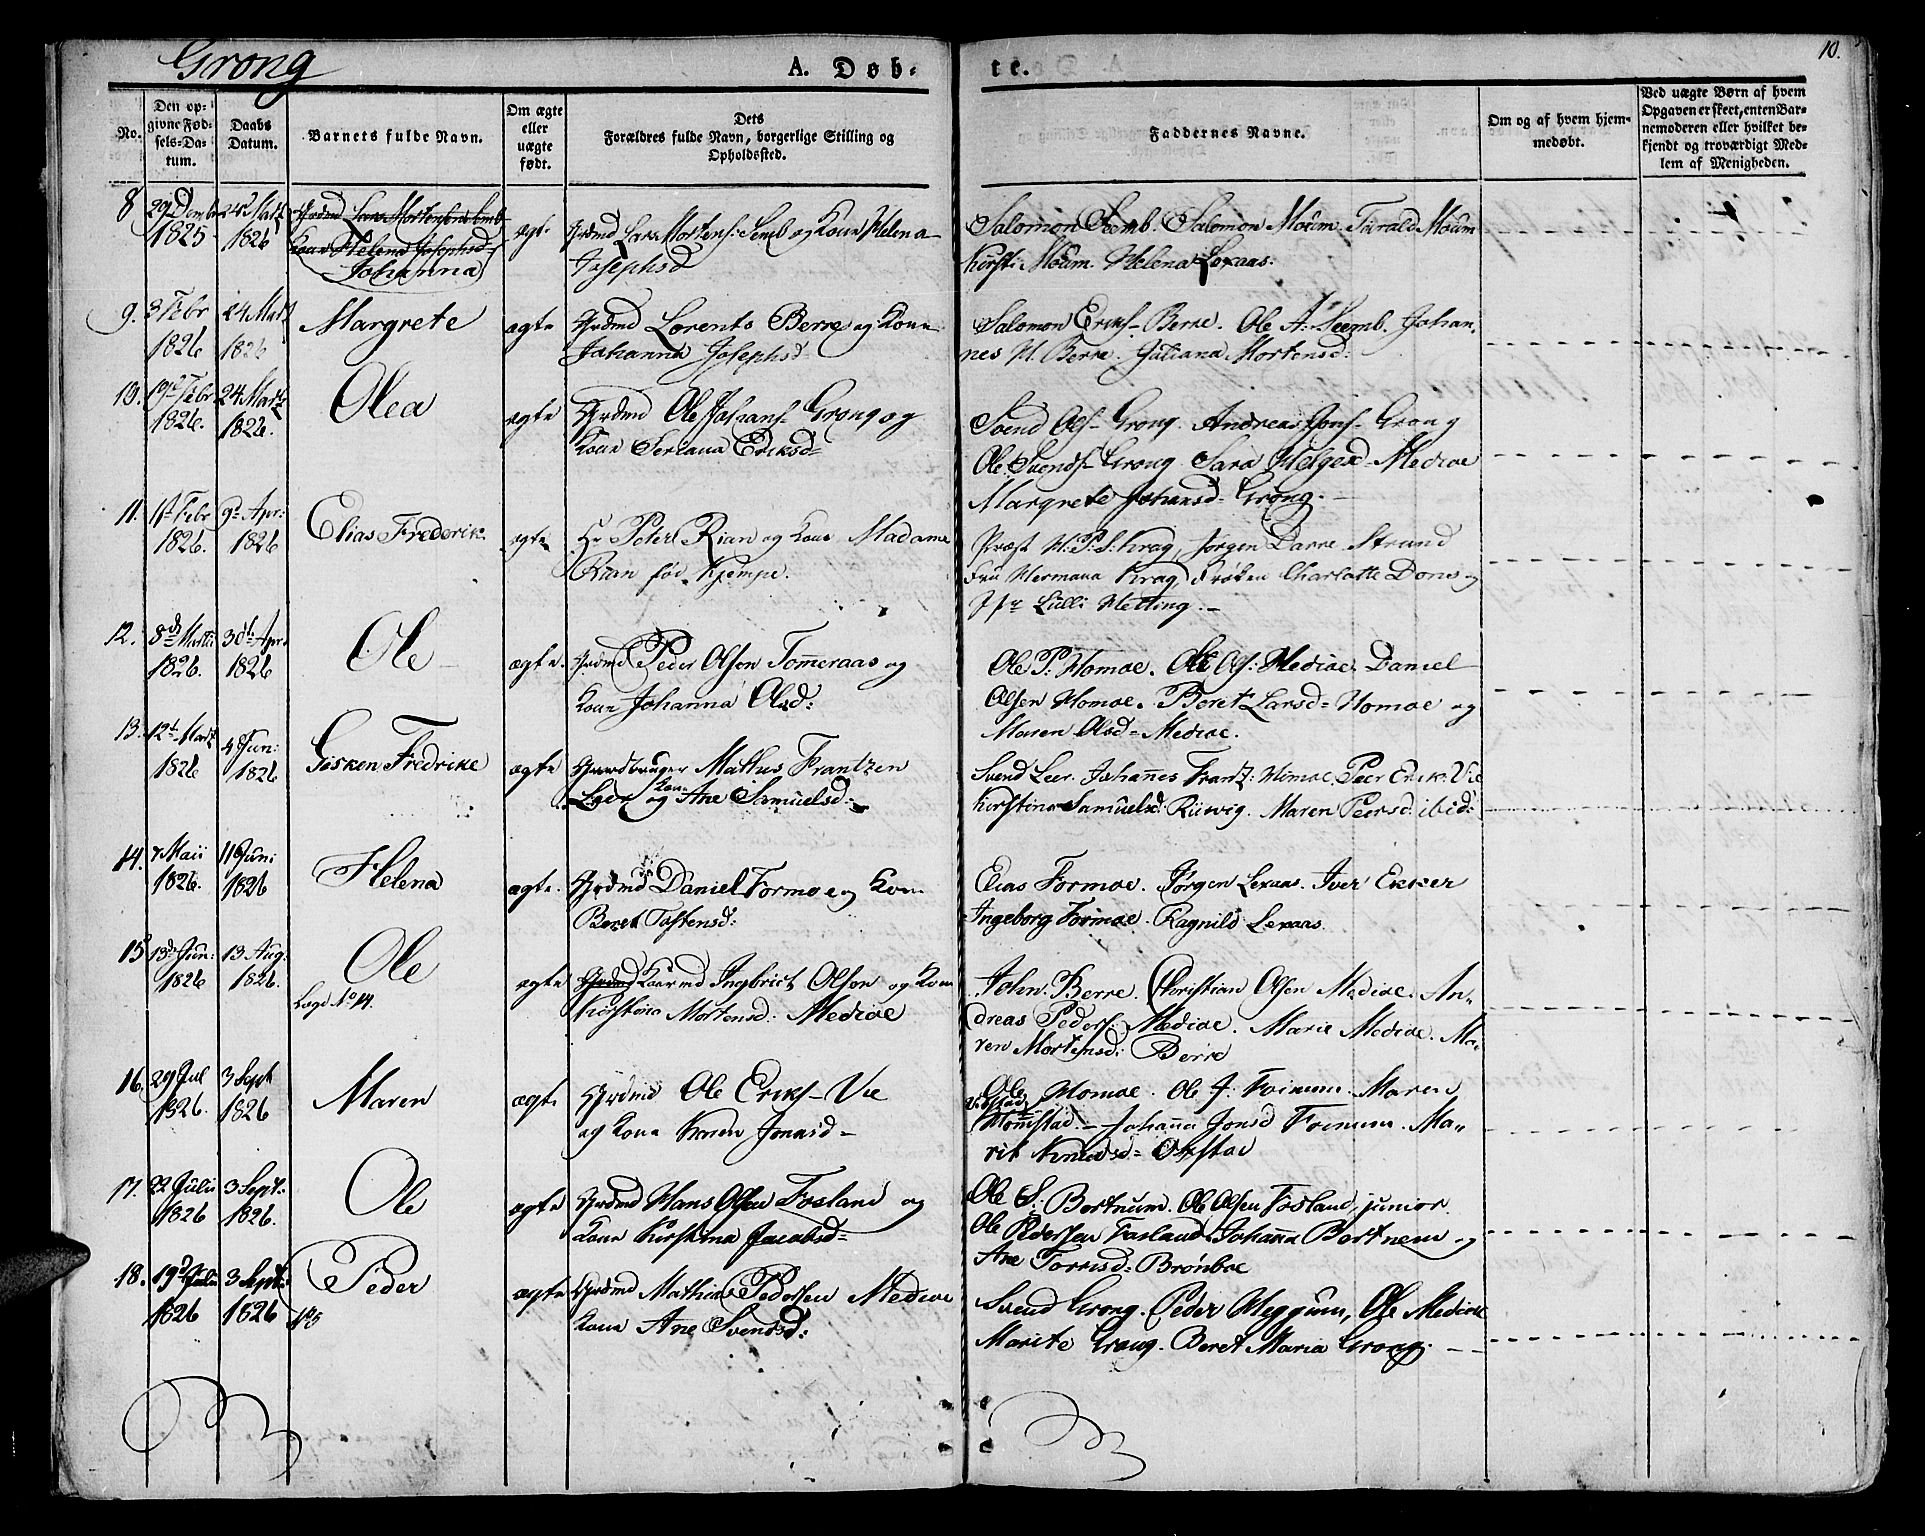 Grong
A. Døb-
te.
10.
No.
Den op-
givne Fød-
sels-Da-
tum.
Daabs
Datum.
Barnets fulde Navn.
Om ægte
eller
uægte
født.
Dets
Forældres fulde Navn, borgerlige Stilling og
Opholdssted.
Faddernes Navne.
Om og af hvem hjem-
medøbt.
Ved uægte Børn af hvem
Opgaven er skeet, enten Bar-
nemoderen eller hvilket be-
kjendt og troværdigt Med-
lem af Menigheden.
8
29 Decmb
1825
24 Martz
1826
Grdmd Lars Mortensens Semb
Kone Helena Josephsd
Johanna
ægt.
Grdmd Lars Mortens: Semb og Kone Helena
Josephsd
Salomon Seemb. Salomon Moum. Tarald Moum
Kirsti Moum. Helena Lexaas:
9.
3 Febr
1826
24 Martz
1826
Margrete
ægte
Grdmd Lorents Berre og Kone
Johanna Josephsd
Salomon Eriks- Berre. Ole A. Seemb. Johan-
nes M. Berre. Juliana Mortensd:
10.
19d Febr
1826.
24 Martz
1826.
Olea
ægte
Grdmd Ole Johans- Grong og
Kone Seriana Eriksd=
Svend Ols- Grong. Andreas Jons- Grong
Ole Svends- Grong. Sara Helgesd- Mediae
Margrete Johansd- Grong.
11.
11t Febr
1826.
9d Apr:
1826
Elias Frederik.
ægte
Hr Peter Rian og Kone Madame
Rian fød Kjempe.
Præst H: P: S: Krag, Jørgen Darre Strand
Fru Hermana Krag, Frøken Charlotte Dons og
Jfr Lulli Hetting.
12.
8de Martii
1826.
30t Apr:
1826
Ole
ægte.
Grdmd Peder Olsen Tømeraas og
Kone Johanna Olsd:
Ole P: Homoe. Ole Ols: Mediae. Daniel
Olsen Homoe. Beret Larsd= Homoe og
Maren Olsd= Mediae.
13.
12t Martz
1826
4 Jun:
1826
Gisken Fredrike
ægte
Gaardbruger Mathus Frantzen
Leer og Kone Ane Samuelsd:
Svend Leer. Johannes Frantz: Homoe. Peer Erik: Vie
Kirstina Samuelsd: Rüwig. Maren Peersd: ibid:
14.
7 Maii
1826.
11 Jun:
1826
Helena
ægte.
Grdmd Daniel Formoe og Kone
Beret Tostensd:
Elias Formoe. Jørgen Lexaas. Iver Ekker
Ingeborg Formoe. Ragnild Lexaas.
15
13de Jun:
1826
13 Aug.
1826.
Ole
Lægd No 14.
ægte
Grdmd Kaarmd Ingbrict Olsen og Kone
Kirstina Mortensd: Mediae
John. Berre. Christian Olsen Mediae. An-
dreas Peders: Mediae. Marie Mediae. Ma-
ren Mortensd: Berre
16.
29 Jul
1826.
3 Sept
1826
Maren
ægte
Grdmd Ole Eriks- Vie
og Kone Karen Jonasd-
Ole Homoe. Ole J: Foinum. Maren
Homstad - Johanna Jonsd Foinum. Ma-
rit Knudsd= Ofstad
17.
22 Julii
1826
3 Sept:
1826.
Ole
ægte
Grdmd Hans Olsen Fosland og
Kone Kirstina Jacobsd=
Ole S: Bortnum. Ole Olsen Fosland, junior
Ole Pedersen Fosland. Johanna Bortnem og
Ane Torrisd= Brønboe
18.
19d Julii
1826
3 Sept:
1826
Peder
ægte
Grdmd Mathias Pedersen Mediae
Kone Ane Svendsd:
Svend Grong. Peder Heggum, Ole Mediae
Marite Grong. Beret Maria Grong.